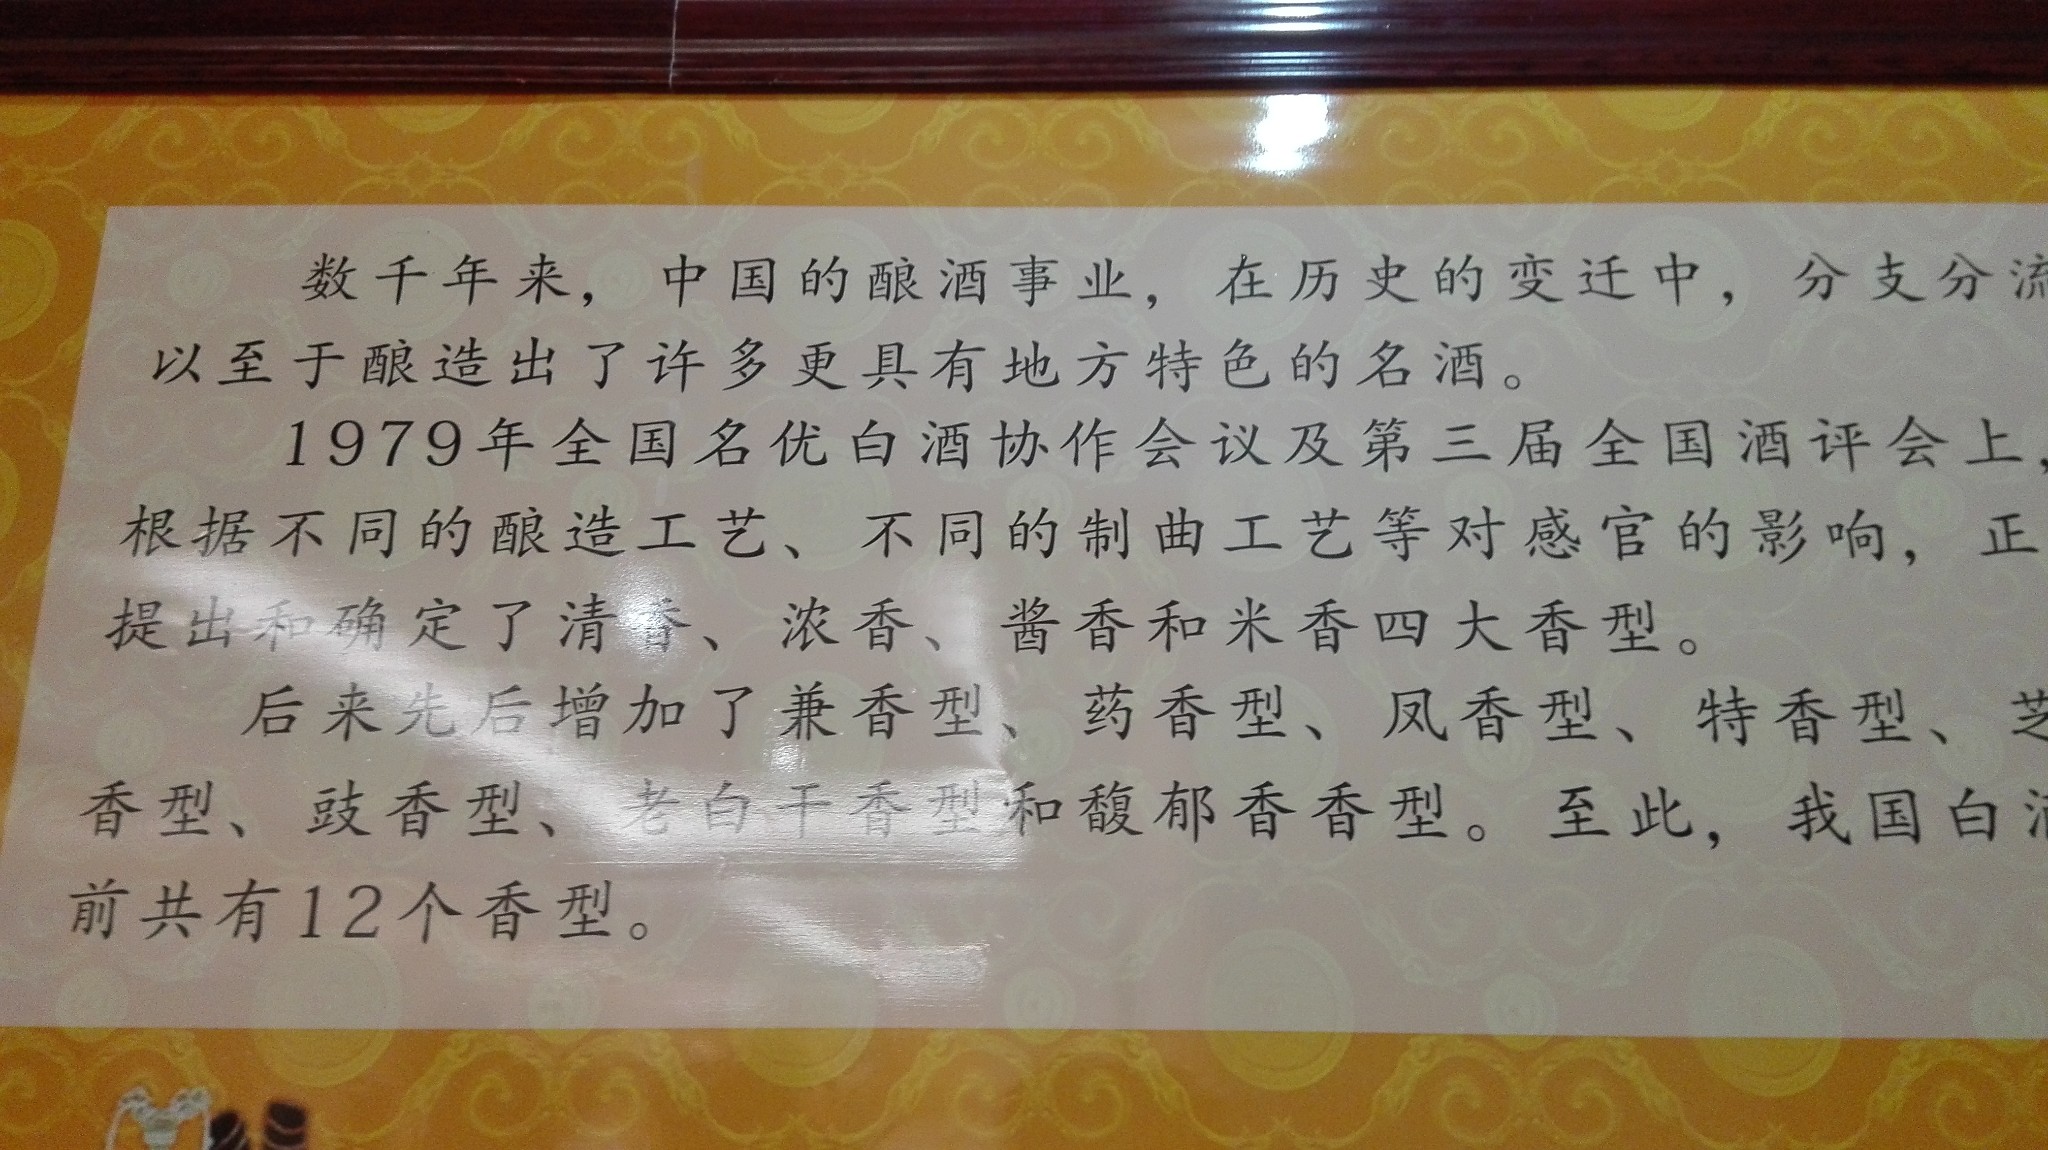 数千年来，中国的酿酒事业，在历史的变迁中，分支分流
以至于酿造出了许多更具有地方特色的名酒。
1979年全国名优白酒协作会议及第三届全国酒评会上，
根据不同的酿造工艺、不同的制曲工艺等对感官的影响，正
提出和确定了清香、浓香、酱香和米香四大香型。
后来先后增加了兼香型、药香型、凤香型、特香型、芝
香型、豉香型、老白干香型和馥郁香香型。至此，我国白酒
前共有12个香型。